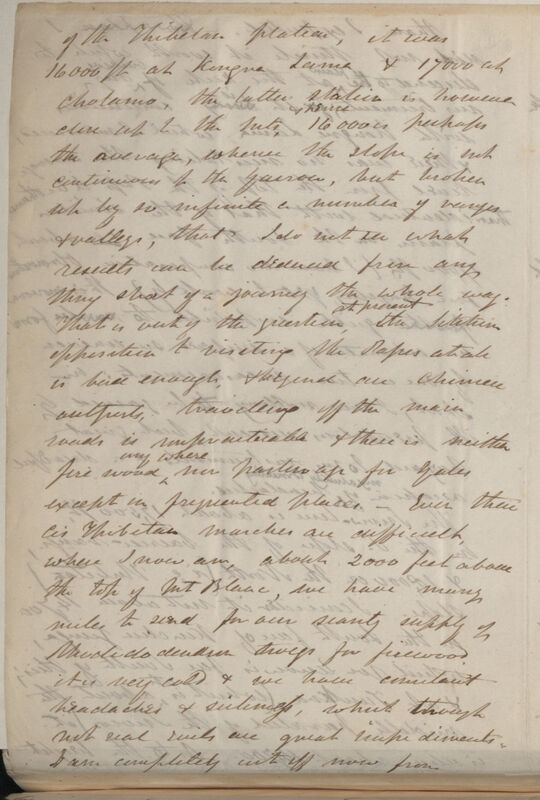 of the Thibetan plateau, it was
16000 ft at Kongra Lama & 17000 at
Cholamo, the latter station is however
close up to the mts, & hence 16000 is perhaps
the average, whence the slope is not
continuous to the Yarrow, but broken
up by so infinite a number of ranges
& valleys, that I do not see what
results can be deduced from any
thing short of a journey the whole way.
That is out of the question at present the Sikkim
opposition to visiting the Passes at all
is bad enough, & beyond are Chinese
outposts, travelling off the main
roads is impracticable & there is neither
fire wood any where nor pasturage for Yaks
except in frequented places — Even these
cis Thibetan marches are difficult,
where I now am, about 2000 feet above
the top of Mt Blanc, we have many
miles to send for our scanty supply of
Rhododendron twigs for firewood
it is very cold & we have constant
headaches & sickness, which though
not real evils are great impediments.
I am completely cut off now from